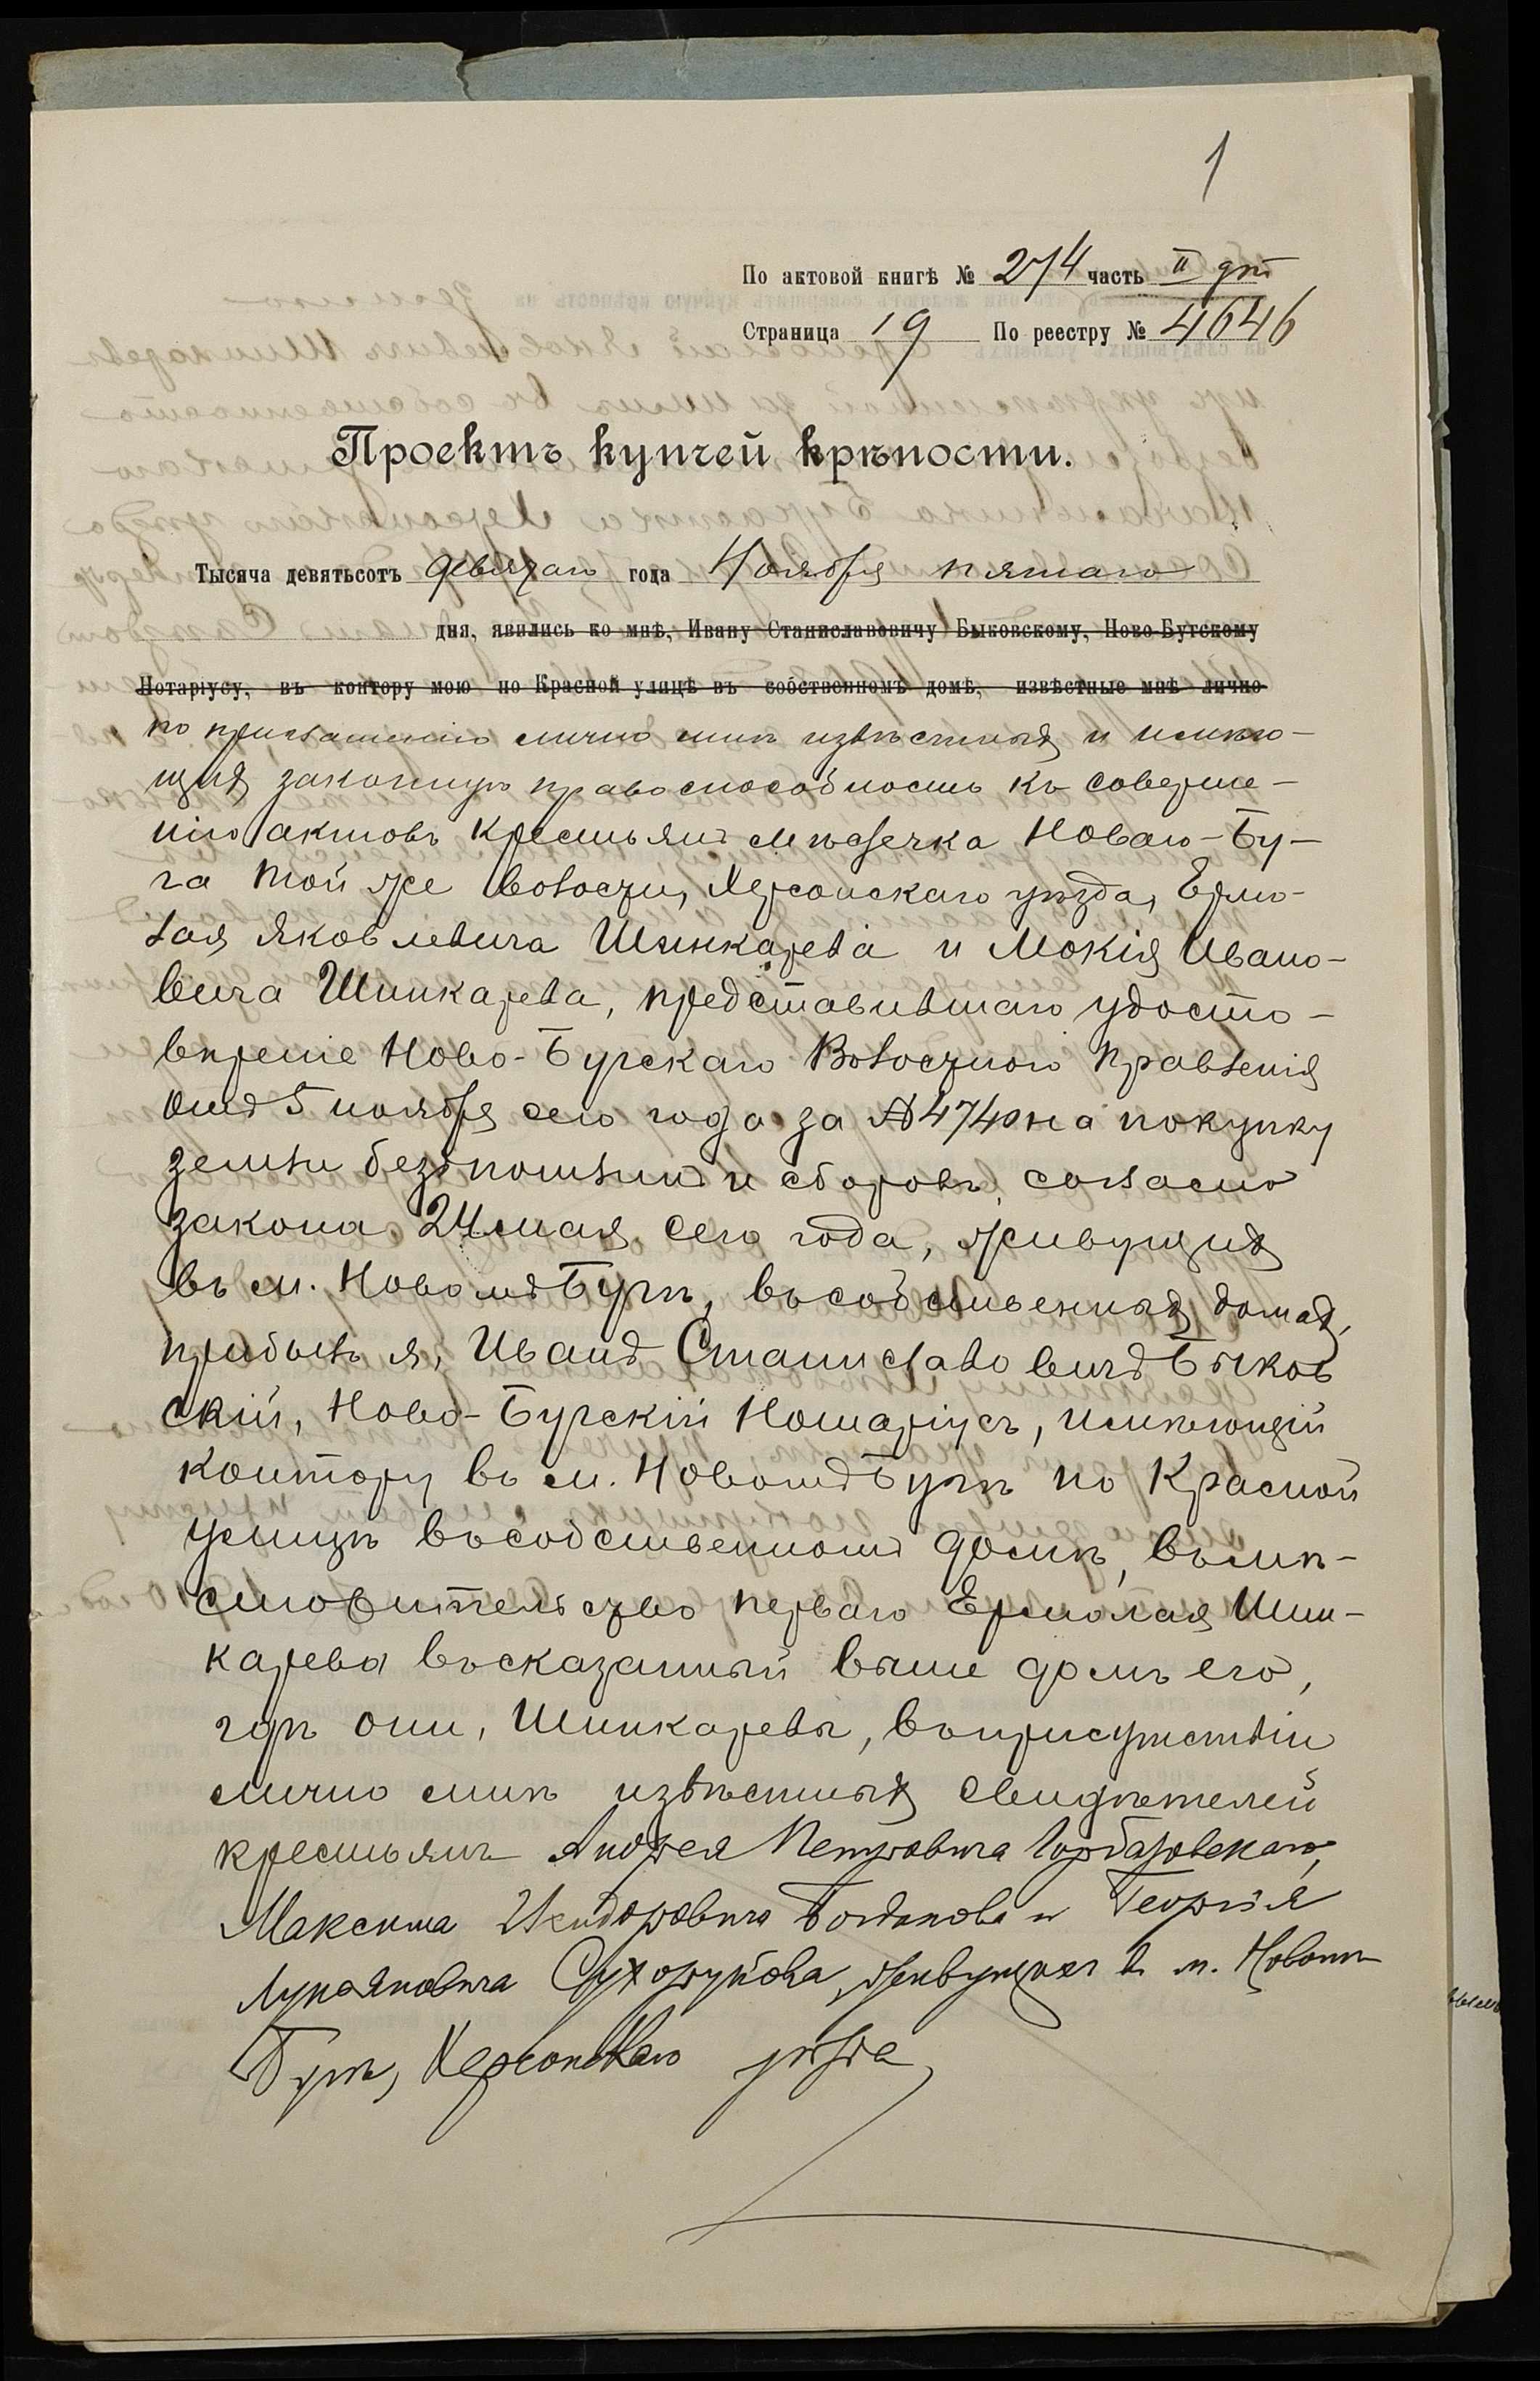 1
По актовой книгѣ № 274 часть II
Страница 19 По реестру № 4646
Проектъ купчей крѣпости.
Тысяча девятьсотъ девятаго года Ноября пятаго
дня, явились ко мнѣ, Ивану Станиславовичу Быковскому, Ново-Бугскому
Нотаріусу, въ контору мою по Красной улицѣ въ собственномъ домѣ, извѣстные мнѣ лично
по приглашенію лично мнѣ извѣстныхъ и имѣю-
щихъ законную правоспособность къ соверше-
нію актовъ крестьянъ мѣстечка Новаго-Бу-
га той же волости, Херсонскаго уѣзда, Ермо-
лая Яковлевича Шинкарева и Мокія Ивано-
вича Шинкарева, представившаго удосто-
вѣреніе Ново-Бугскаго Волостного Правленія
отъ 5 ноября сего года за № 4740 на покупку
земли безъ пошлинъ и сборовъ, согласно
закона 24 мая сего года, живущихъ
въ м. Новомъ Бугѣ, въ собственныхъ домахъ,
прибылъ я, Иванъ Станиславовичъ Быков
скій, Ново-Бугскій Нотаріусъ, имѣющій
контору въ м. Новомъ Бугѣ по Красной
улицѣ въ собственномъ домѣ, въ мѣ-
стожительство перваго Ермолая Шин-
карева въ сказанный выше домъ его,
гдѣ они, Шинкаревы, въ присутствіи
лично мнѣ извѣстныхъ свидѣтелей
крестьянъ Андрея Петровича
Максима Исидоровича Богданова и Георгія
Лукьяновича Сухорукова, живущихъ въ м. Новомъ
Бугѣ, Херсонскаго уѣзда,